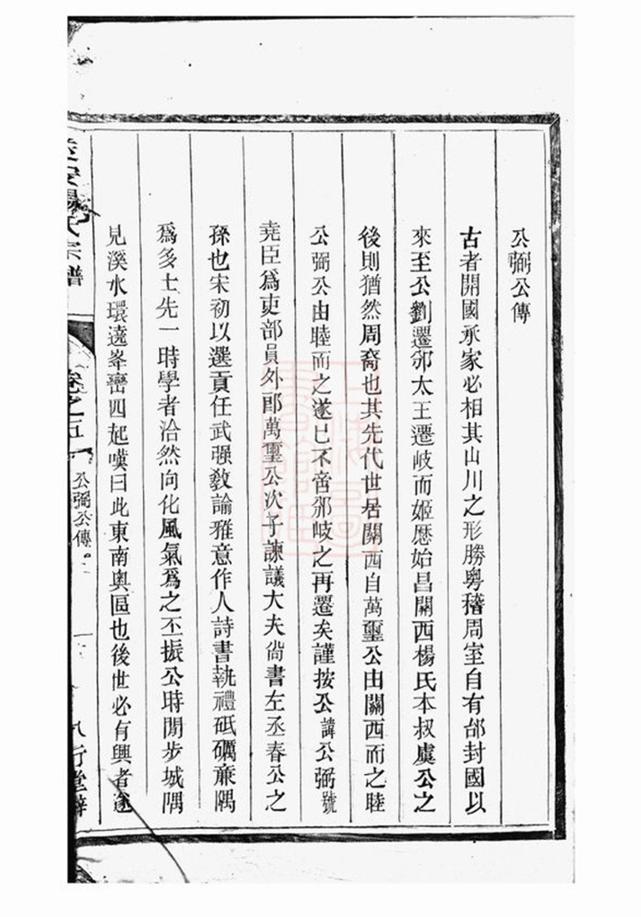 公弼公傳
古者開國承家必相其山川之形勝粵稽周室自有邰封國以
來至公劉遷邠太王遷岐而姬歷始昌關西楊氏本叔虞公之
後則猶然周裔也其先代世居關西自萬璽公由關西而之睦
公弼公由睦而之遂已不啻邠岐之再遷矣謹按公諱公弼號
堯臣為吏部員外郎萬璽公次子諫議大夫尚書左丞春公之
孫也宋初以選貢任武强敎諭雅意作人詩書執禮砥礪亷隅
為多士先一時學者洽然向化風氣為之丕振公時閒步城隅
見溪水環遶峯巒四起嘆曰此東南奥區也後世必有興者遂
氏宗譜
卷之五
公弼公傳
八行堂